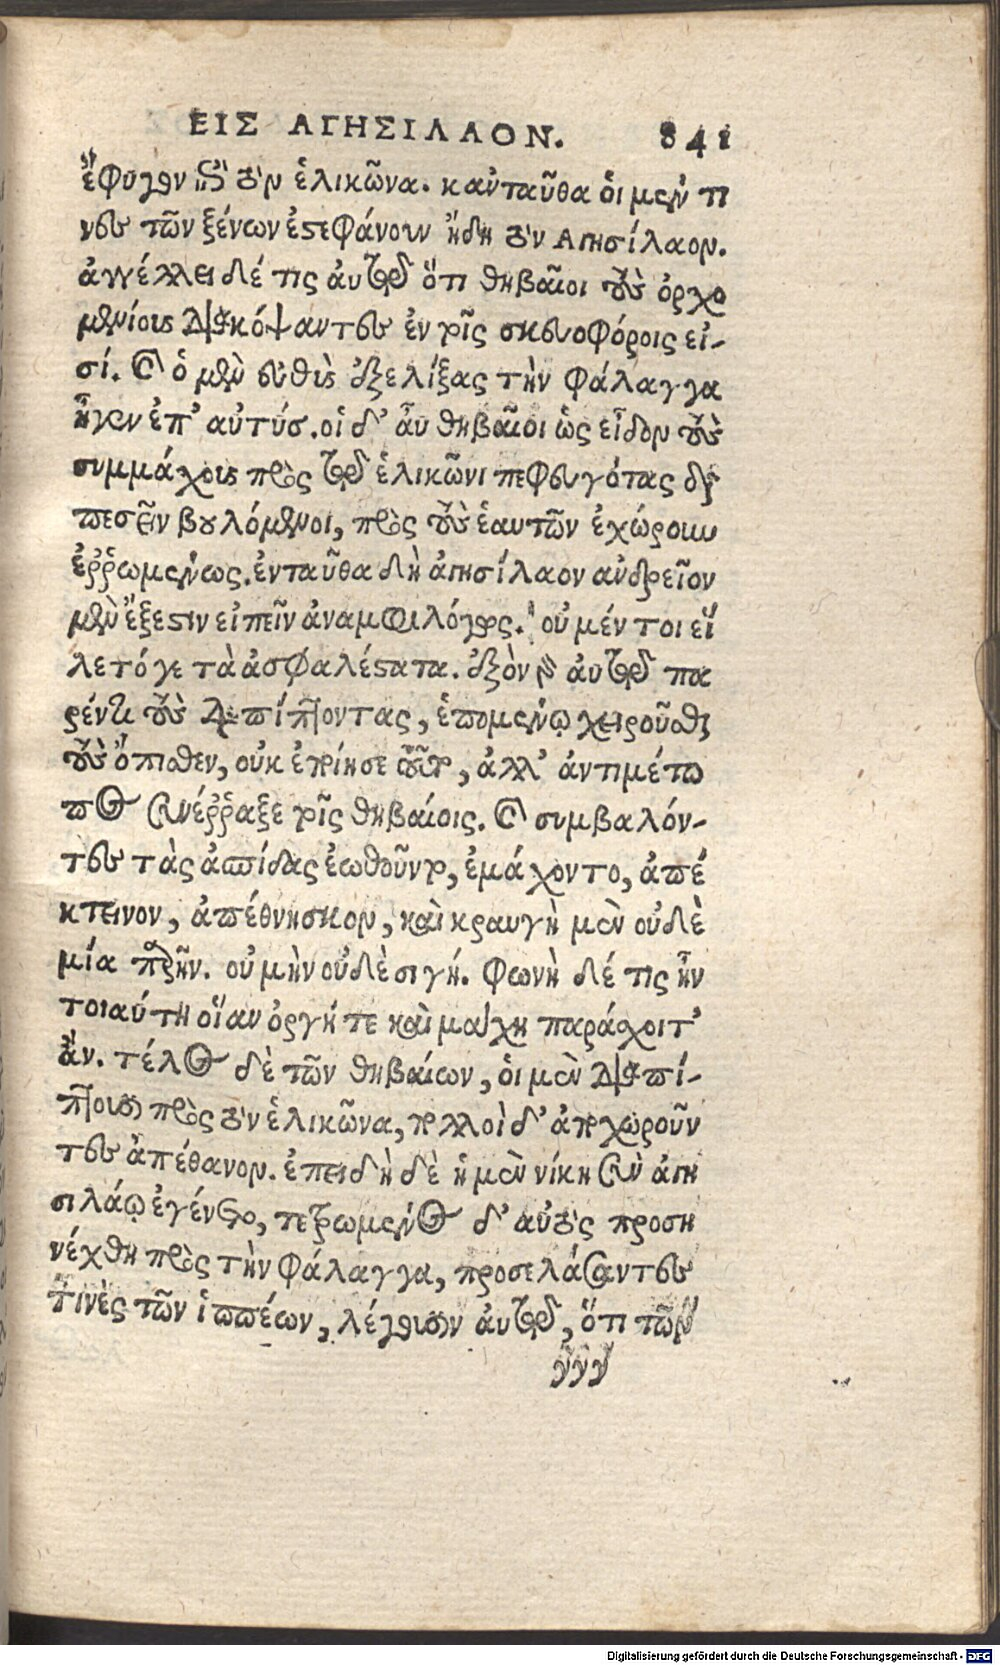 ΕΙΣ ΑΓΗΣΙΛΑΟΝ. 841
ἔφυγον ἐπὶ τὸν ἑλικῶνα. κἀνταῦθα οἱ μέν τι
νες τῶν ξένων ἐστεφάνουν ἤδη τὸν Αγησίλαον.
ἀγγέλλει δέ τις ἀυτῷ ὅτι θηβαῖοι τοὺς ὀρχο
μενίους διακόψαντες ἐν τοῖς σκευοφόροις εἰ-
σί. καὶ ὁ μὲν εὐθὺς ἐξελίξας τὴν φάλαγγα
ἦγεν ἐπ' αὐτούς. οἱ δ' ἆυ θηβαῖοι ὡς εἶδον τοὺς
συμμάχους πρὸς τῷ ἑλικῶνι πεφευγότας δια
πεσεῖν βουλόμενοι, πρὸς τοὺς ἑαυτῶν ἐχώρουν
ἐῤῥωμένως. ἐνταῦθα δὴ ἀγησίλαον ανδρεῖον
μὲν ἔξεστιν εἰπεῖν ἀναμφιλόγως. οὐ μέν τοι εἵ
λετό γε τὰ ἀσφαλέστατα. ἐξὸν γὰρ ἀυτῷ πα
ρέντι τοὺς διαπίπτοντας, ἑπομένῳ χειροῦσθαι
τοὺς ὄπισθεν, οὐκ ἐποίησε τοῦτο, ἀλλ' ἀντιμέτω
πος συνέῤῥαξε τοῖς θηβαίοις. καὶ συμβαλόν-
τες τὰς ἀσπίδας ἐωθοῦντο, ἐμάχοντο, ἀπέ
κτεινον, ἀπέθνησκον, καὶ κραυγὴ μὲν οὐδὲ
μία παρῆν. οὐ μὴν οὐδὲ σιγή. φωνὴ δέ τις ἦν
τοιαύτη οἵαν ὀργή τε καὶ μάχη παράσχοιτ'
ἄν. τέλος δὲ τῶν θηβαίων, οἱ μὲν διαπί-
πτουσι πρὸς τὸν ἑλικῶνα, πολλοὶ δ' ἀποχωροῦν
τες ἀπέθανον. ἐπειδὴ δὲ ἡ μὲν νίκη σὺν ἀγη
σιλάῳ ἐγένετο, τετρωμένος δ' αὐτὸς προση
νέχθη πρὸς τὴν φάλαγγα, προσελάσαντες
τινὲς τῶν ἱππέων, λέγουσιν ἀυτῷ, ὅτι τῶν
γγγ
Digitalisierung gefördert durch die Deutsche Forschungsgemeinschaft - DFG